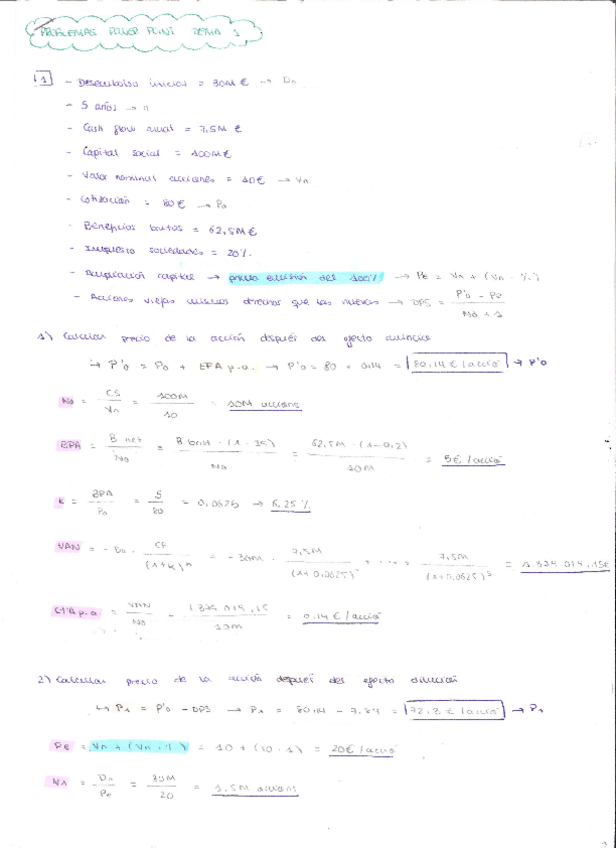 PROBLEMAS POWER POINT TEMA 1
1 - Desembolso inicial = 30M € → D0
- 5 años → n
- Cash flow anual = 7,5M €
- Capital social = 100M€
- Valor nominal acciones = 10€ → Vn
- Cotización = 80€ → P0
- Beneficios brutos = 62,5M€
- Impuesto sociedades = 20%
- Ampliación capital → prima emisión del 100% → PE = Vn + (Vn · %)
- Acciones viejas mismos derechos que las nuevas → DPS = P'0 - PE / N0 + 1
1) Calcular precio de la acción después del efecto anuncio
↳ P'0 = P0 + EPA p.a. → P'0 = 80 + 0,14 = 80,14 €/acció → P'0
N0 = CS / Vn = 100M / 10 = 10M accions
BPA = B net / N0 = B brut · (1 - IS) / N0 = 62,5M · (1-0,2) / 10M = 5€/acció
K = BPA / P0 = 5 / 80 = 0,0625 → 6,25%
VAN = - D0 · CF / (1+k)^n = -30M · 7,5M / (1+0,0625) + ···· + 7,5M / (1+0,0625)^5 = 1 374 019,15€
p.a = VAN / N0 = 1374 019,15 / 10M = 0,14 €/acció
2) Calcular precio de la acción después del efecto dilución
↳ P1 = P'0 - DPS → P1 = 80,14 - 7,84 = 72,3 €/acció → P1
PE = Vn + (Vn · %) = 10 + (10 · 1) = 20€/acció
= 30M / 20 = 1,5M accions